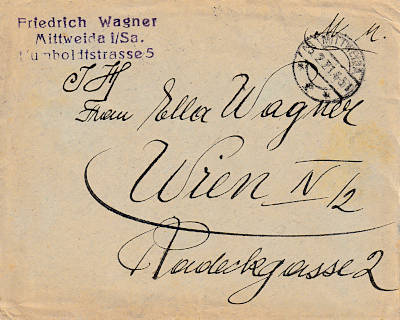 Friedrich Wagner
Mittweida i/Sa.
Humboldtstrasse 5
MITTWEIDA
Frau Ella Wagner
Wien IV/2
Radeckgasse 2